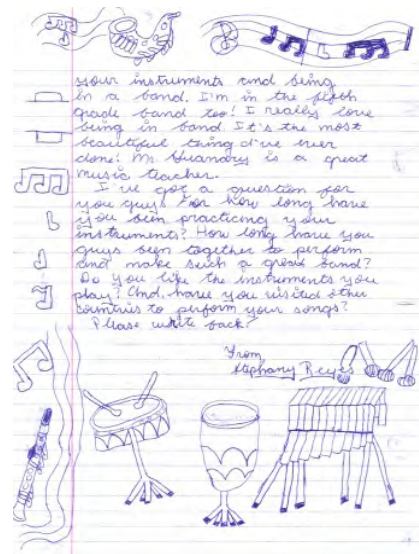 your instruments and being
in a band. I'm in the fifth
grade band too! I really love
being in band. It's the most
beautiful thing I've ever
done! Mr. is a great
music teacher.
I've got a question for
you guys. For how long have
you been practicing your
instruments? How long have you
guys been together to perform
and make such a great band?
Do you like the instruments you
play? And, have you visited other
countries to perform your songs?
Please write back!
From
Stephany Reyes